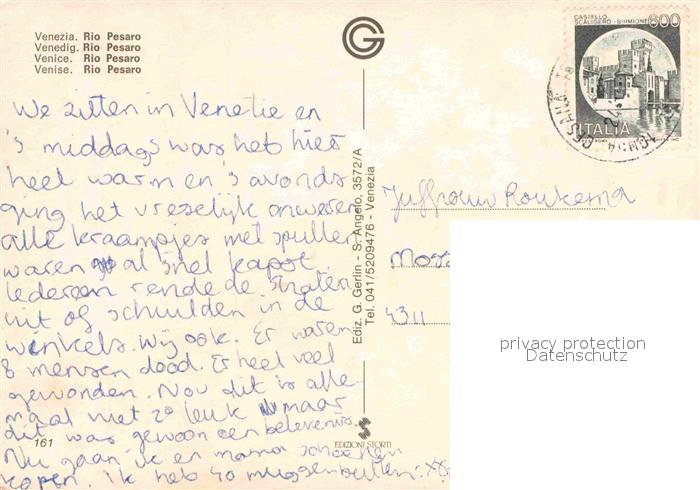 Venezia. Rio Pesaro
Venedig. Rio Pesaro
Venice. Rio Pesaro
Venise. Rio Pesaro
We zitten in Venetie en
's middags was het hier
heel warm en 's avonds
ging het vreselijk onweren
alle kraampjes met spullen
waren al snel kapot.
Iedereen rende de straten
uit of schuilden in de
winkels. Wij ook. Er waren
8 mensen dood. Er heel veel
gewonden. Nou dit is alle-
maal niet zo leuk maar
dit was gewoon een belevenis.
Nu gaan ik en mama schoenen
kopen. Ik heb 40 muggenbulten.
161
G
Ediz. G. Gerlin - S. Angelo, 3572/A
Tel. 041/5209476 - Venezia
EDIZIONI STORTI
CASTELLO
SCALIGERO - SIRMIONE
600
ITALIA
Juffrouw Roukema
4311
privacy protection
Datenschutz